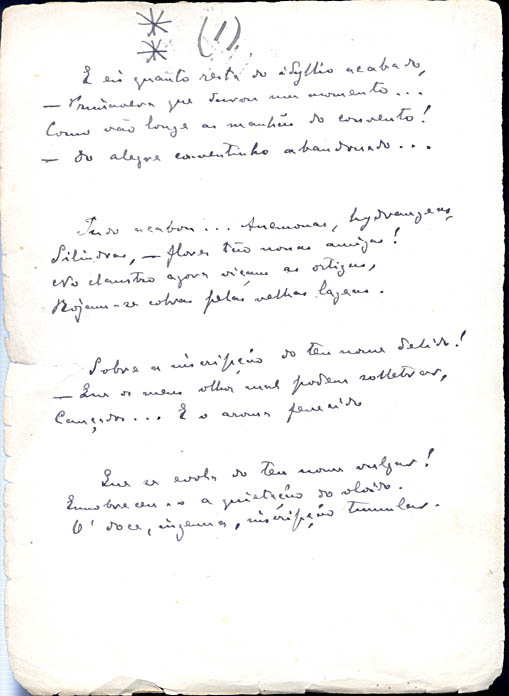 (1)
E eis quanto resta do idyllio acabado,
— Primavera que durou um momento...
Como vão longe as manhãs do convento!
— Do alegre conventinho abandonado...
Tudo acabou... Anemonas, hydrangeas,
Silindras, — flores tão nossas amigas!
No claustro agora viçam as ortigas,
Rojam-se cobras pelas velhas lageas.
Sobre a inscripção do teu nome delido!
— Que os meus olhos mal podem soletrar,
Cançados... E o aroma fenecido
Que se evola do teu nome vulgar!
Ennobreceu-o a quietação do olvido.
O' doce, ingenua, inscripção tumular.